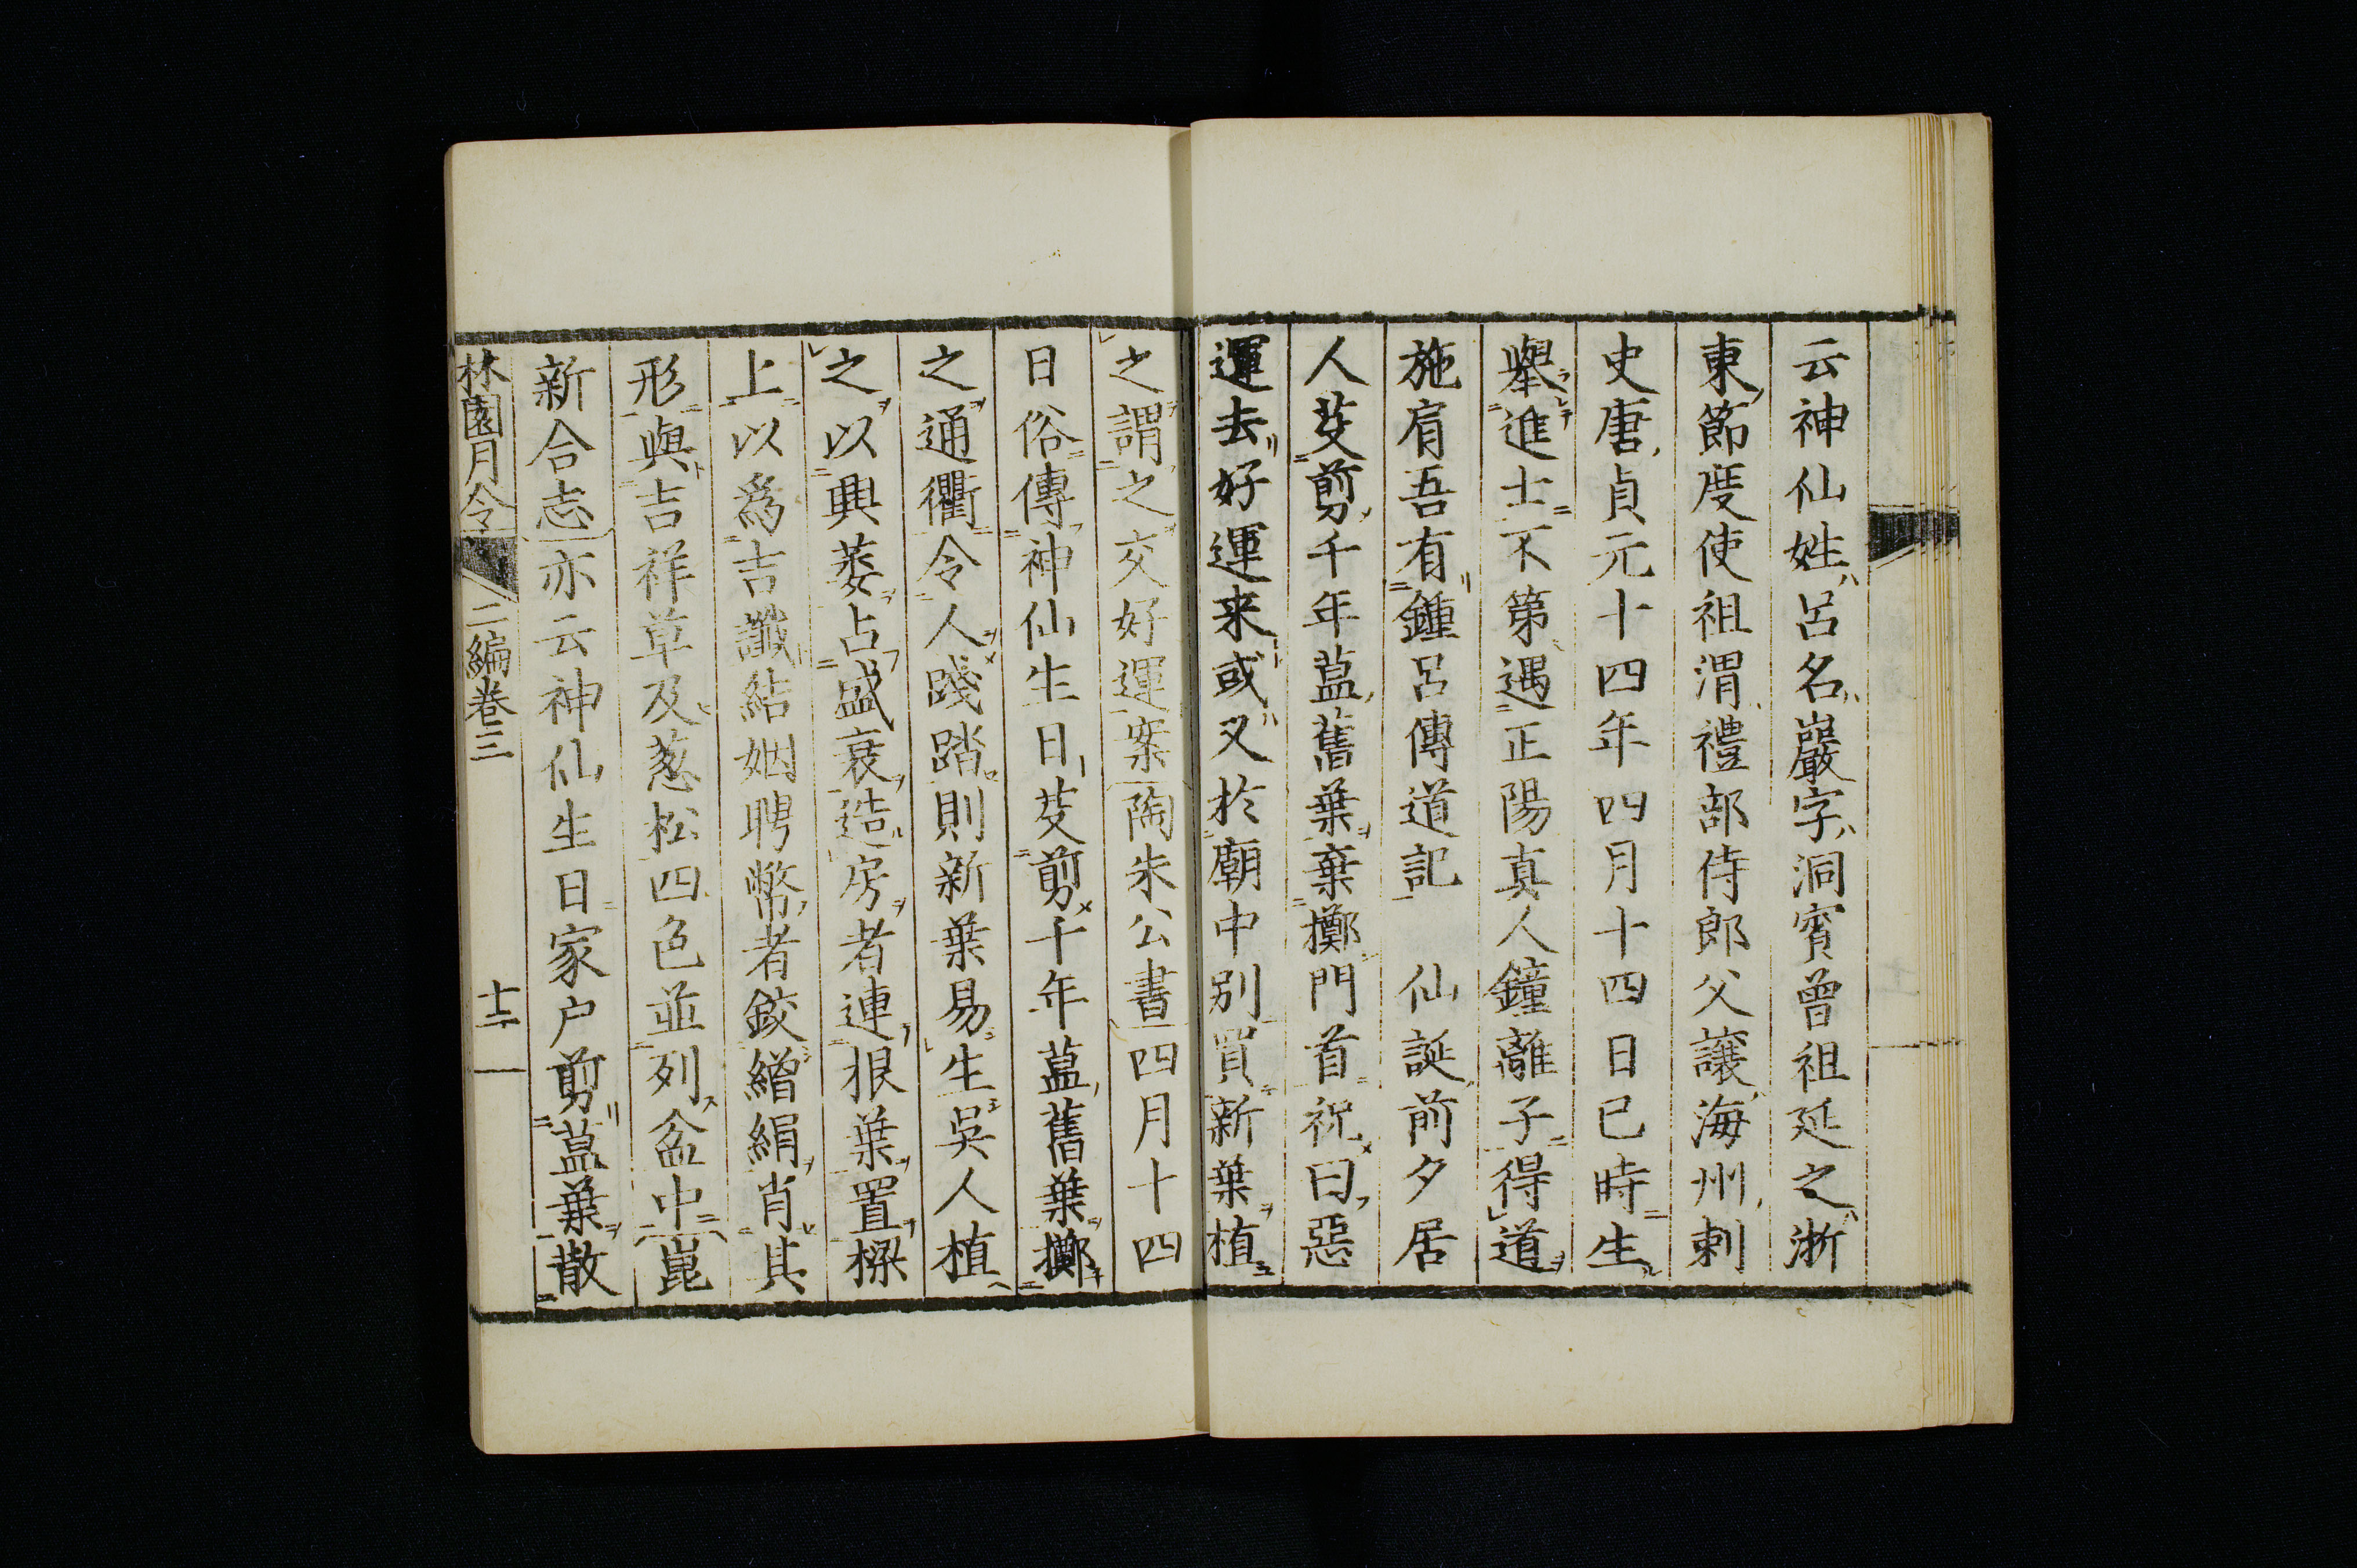 云神仙姓呂名巖字洞賓曾祖延之浙
東節度使祖渭禮部侍郎父讓海州刺
史唐貞元十四年四月十四日巳時生
擧進士不第遇正陽真人鐘離子得道
施肩吾有鍾呂傳道記　仙誕前夕居
人芟剪千年蒀舊葉棄擲門首祝曰惡
運去好運来或又於廟中別買新葉植
之謂之交好運案陶朱公書四月十四
日俗傳神仙生日芟剪千年蒀舊葉擲
之通衢令人踐踏則新葉易生吳人植
之以興萎占盛衰造房者連根葉置樑
上以爲吉讖結姻聘幣者鉸繒絹肖其
形與吉祥草及葱松四色並列盆中崑
新合志亦云神仙生日家户剪蒀葉散
林園月令 二編卷三 十二